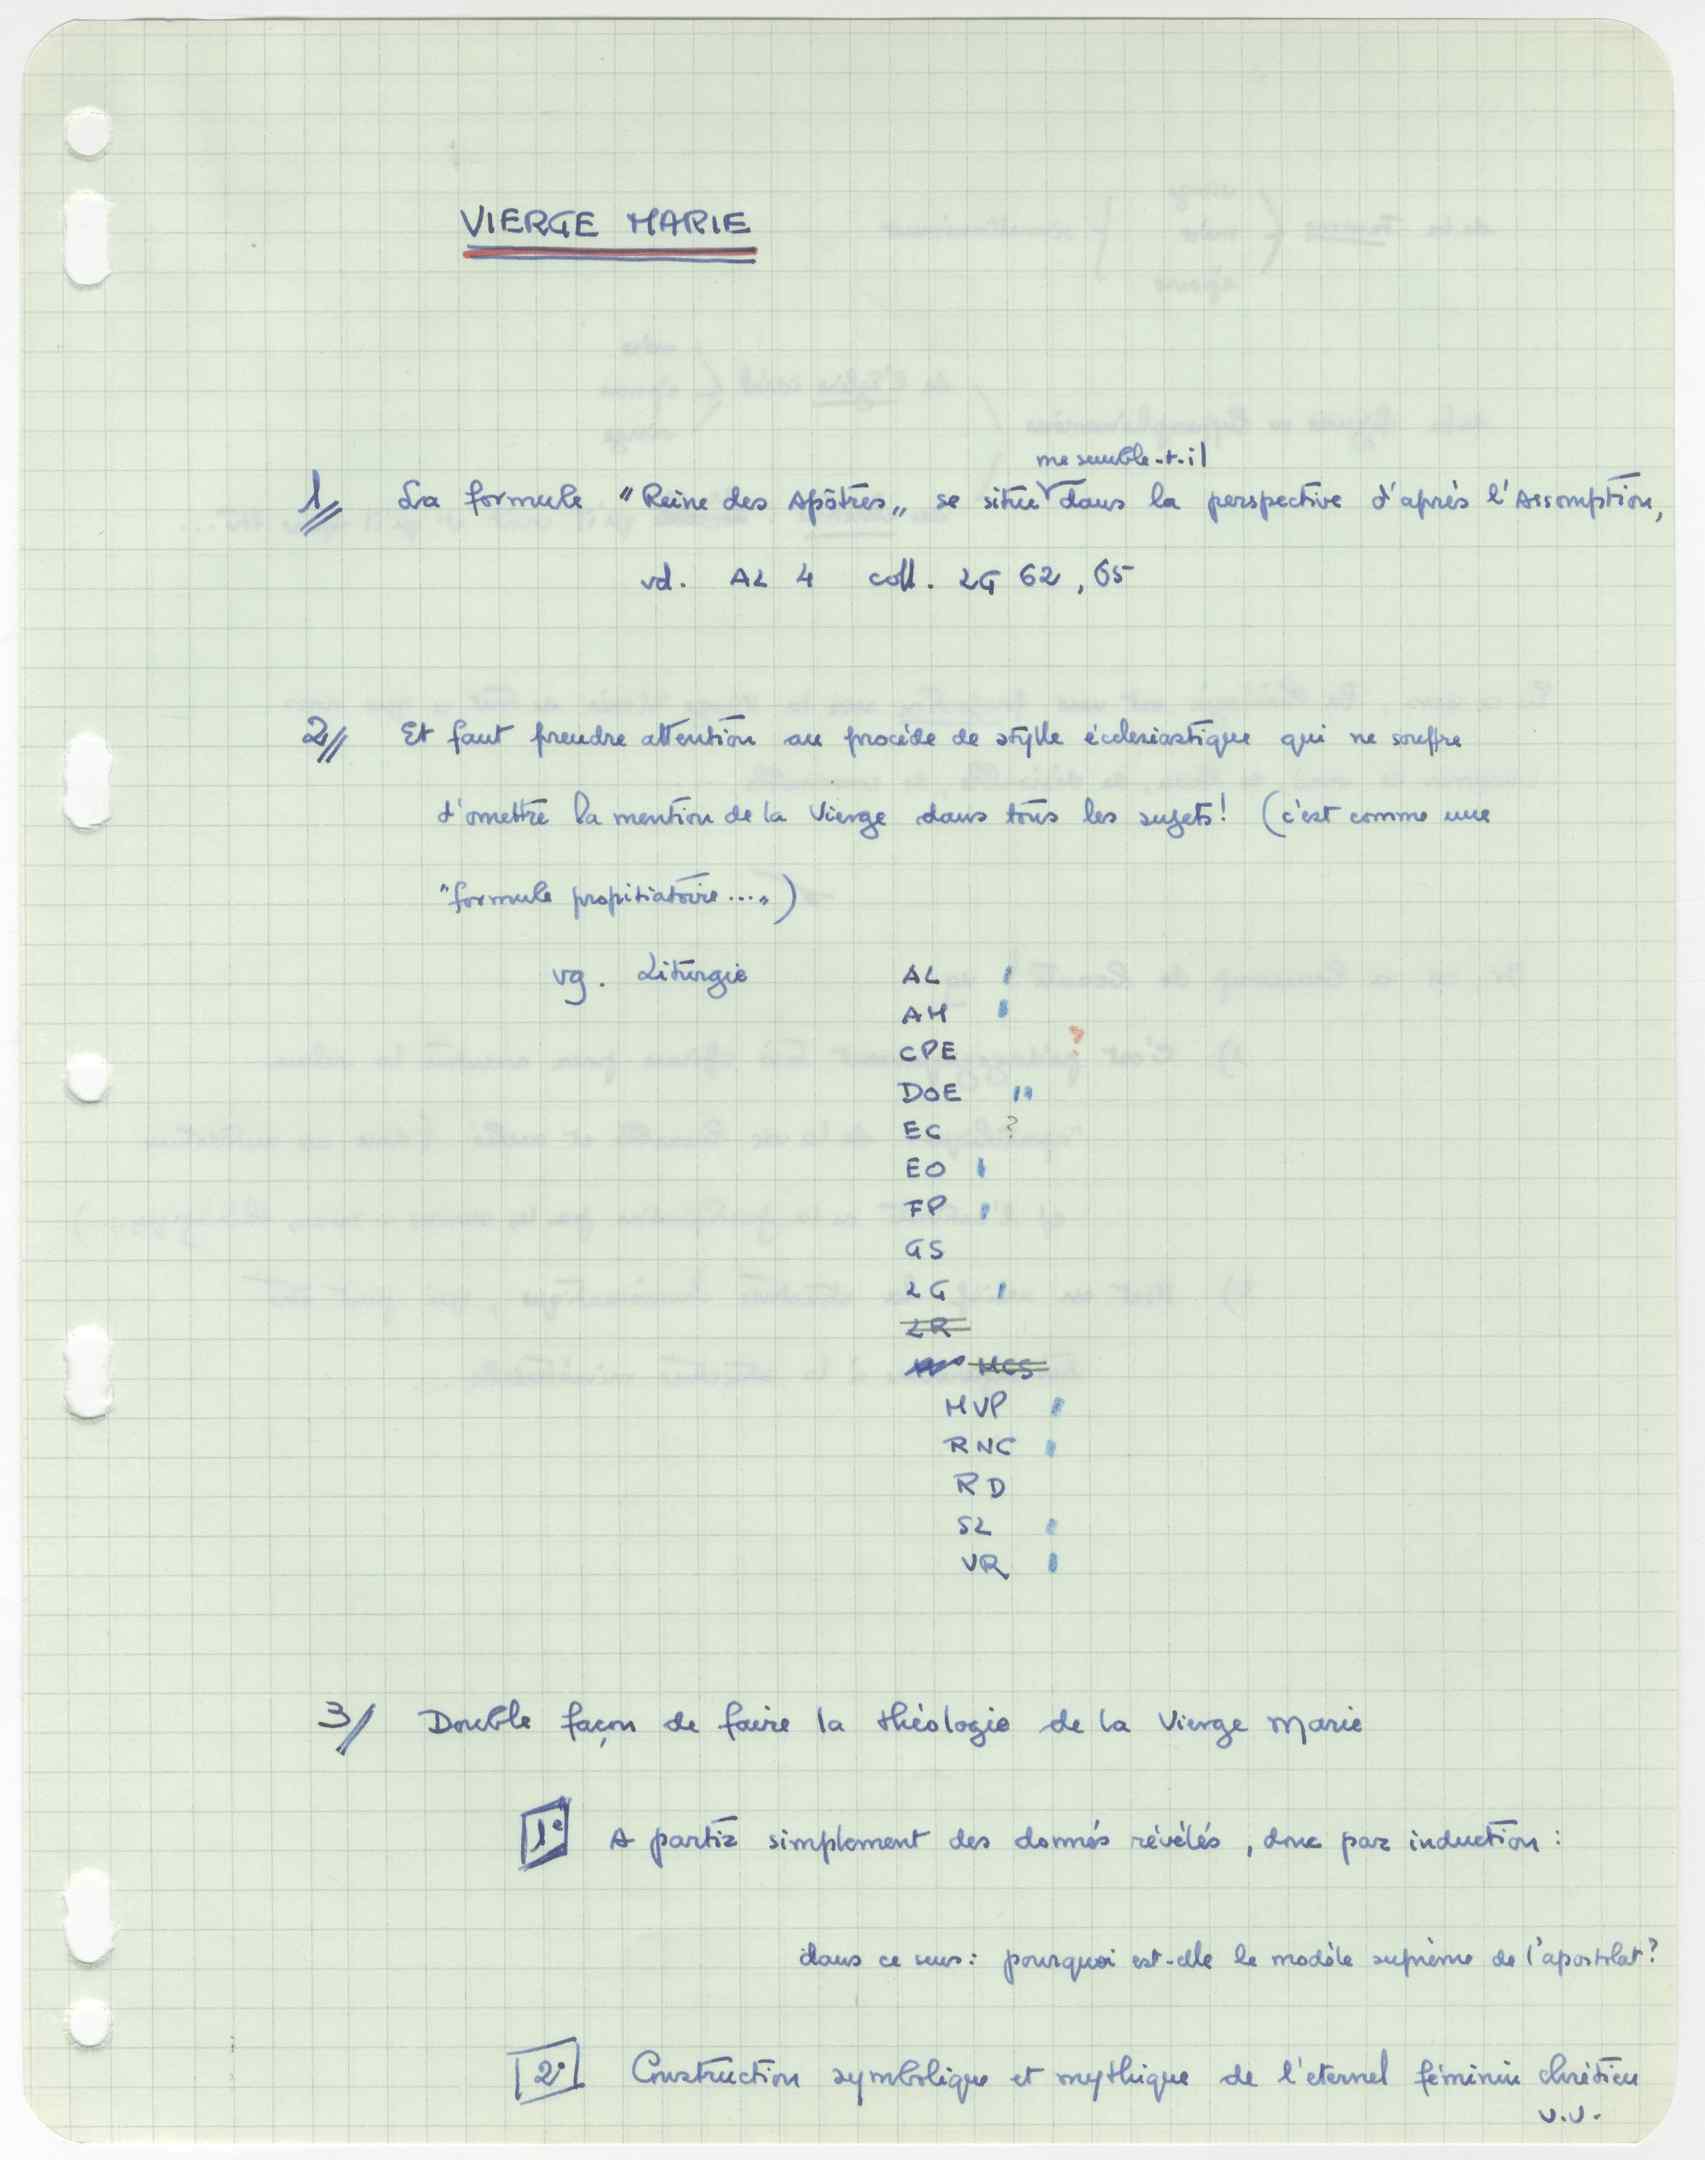 VIERGE MARIE
me semble-t-il
1// La formule "Reine des Apôtres„ se situe dans la perspective d'après l'Assomption,
vd. AL 4 coll. LG 62, 65
2// Et faut prendre attention au procède de stylle écclesiastique qui ne souffre
d'omettre la mention de la Vierge dans tous les sujets! (c'est comme une
"formule propitiatoire...„)
vg. Liturgie AL
AM
CPE ?
DOE
EC ?
EO
FP
GS
LG
LR
MCS
MVP
RNC
RD
SL
VR
3/ Double façon de faire la théologie de la Vierge Marie
1º A partir simplement des donnés révélés, donc par induction :
dans ce sens: pourquoi est-elle le modèle suprème de l'apostolat?
2º Construction symbolique et mythique de l'eternel féminin chrétien
v.v.